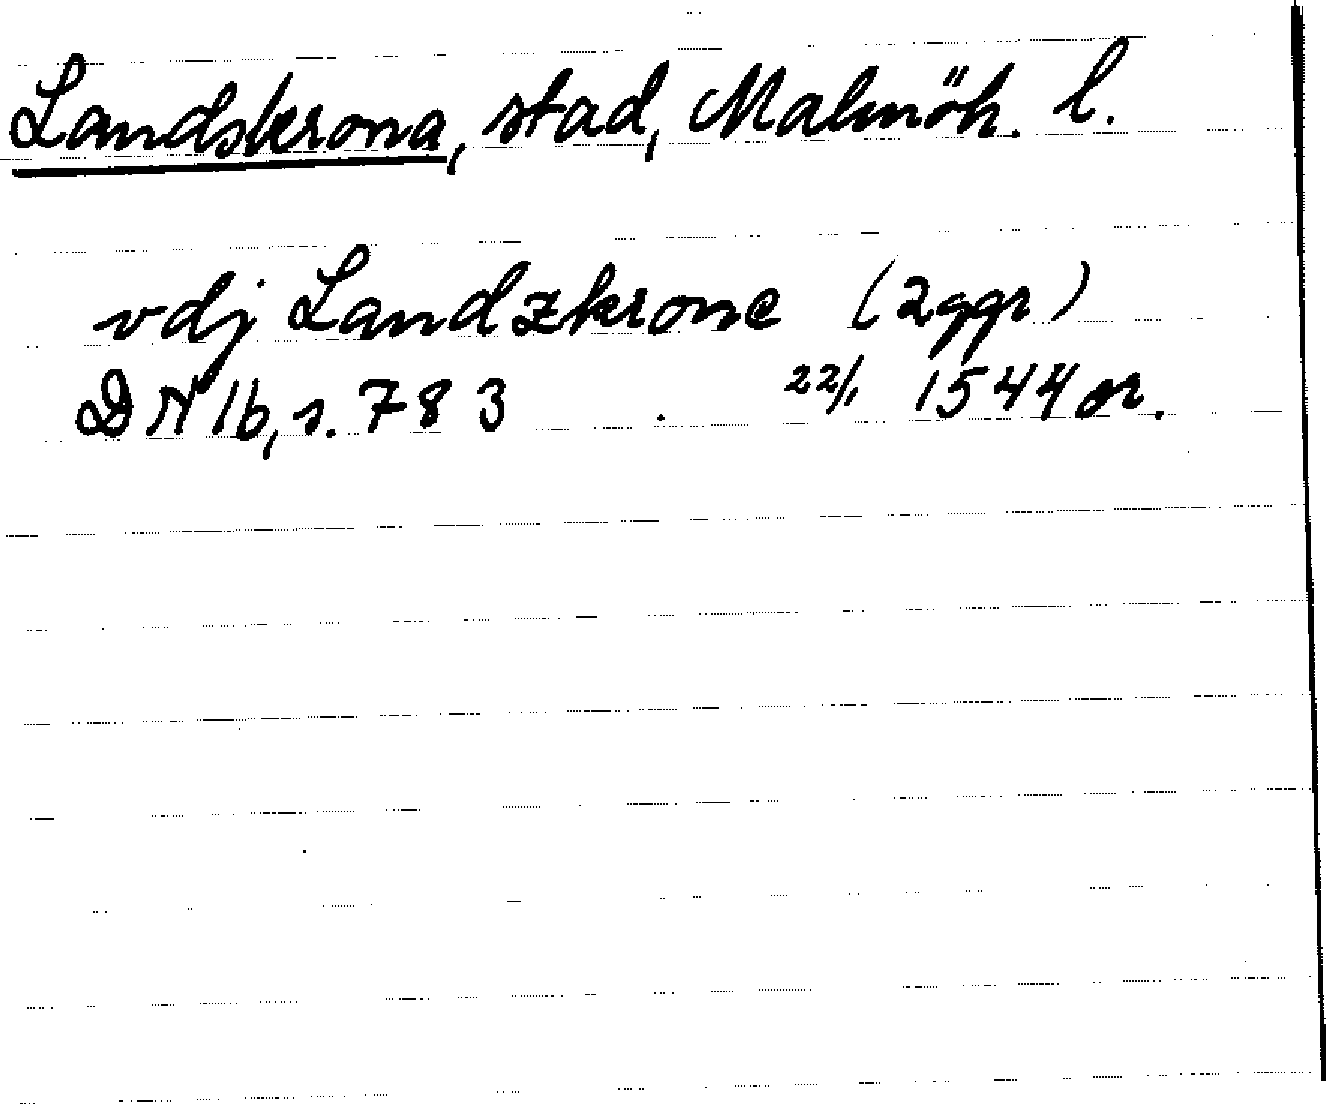 Landskrona, stad, Malmöh. l.
vdj Landzkrone (2 ggr)
DN 16, s. 783 22/1 1544 or.